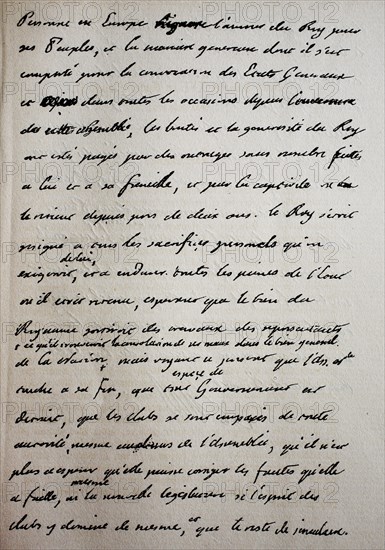 Personne en Europe ignore l'amour du Roy pour
ses Peuples, et la maniere genereuse dont il s'est
comporté pour la convocation des Etats Generaux
et dans toutes les occasions depuis l'ouverture
de cette assemblée, les bontés et la generosité du Roy
ont étés payés par des outrages sans nombre faittes
a lui et a sa famille, et par la captivité
depuis près de deux ans. le Roy s'etoit
resigné a tous les sacrifices personels qu'on
de lui,
exigeroit, et a endurer toutes les peines de l'etat
où il etoit reduit, esperant que le bien du
Royaume des travaux des representants
et de ses maux dans le bien general
de la Nation, mais voyant a present que l'Ass.
espece de
touche a sa fin, que tout Gouvernement est
detruit, que les clubs se sont emparés de toute
autorité, meme de l'Assemblée, qu'il n'est
plus a esperer qu'elle puisse corriger les fautes qu'elle
meme
a faitte, ni la nouvelle legislature si l'esprit des
clubs y domine de meme, et que le reste de
PHOTO12